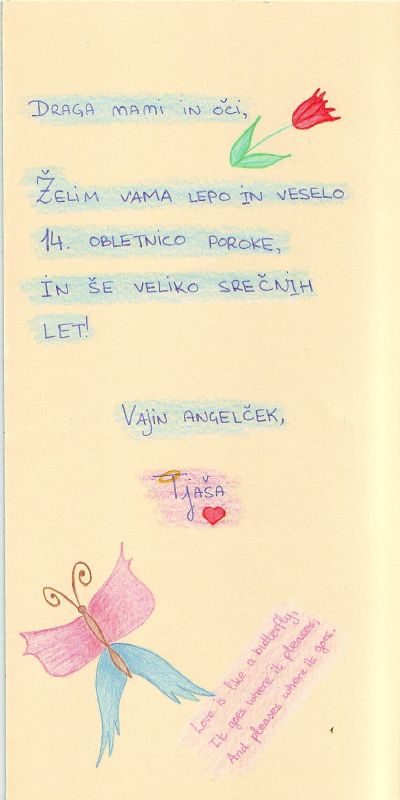 DRAGA MAMI IN OČI,
ŽELIM VAMA LEPO IN VESELO
14. OBLETNICO POROKE,
IN ŠE VELIKO SREČNIH
LET!
VAJIN ANGELČEK,
TJAŠA
Love is like a butterfly,
It goes where it pleases,
And pleases where it goes.